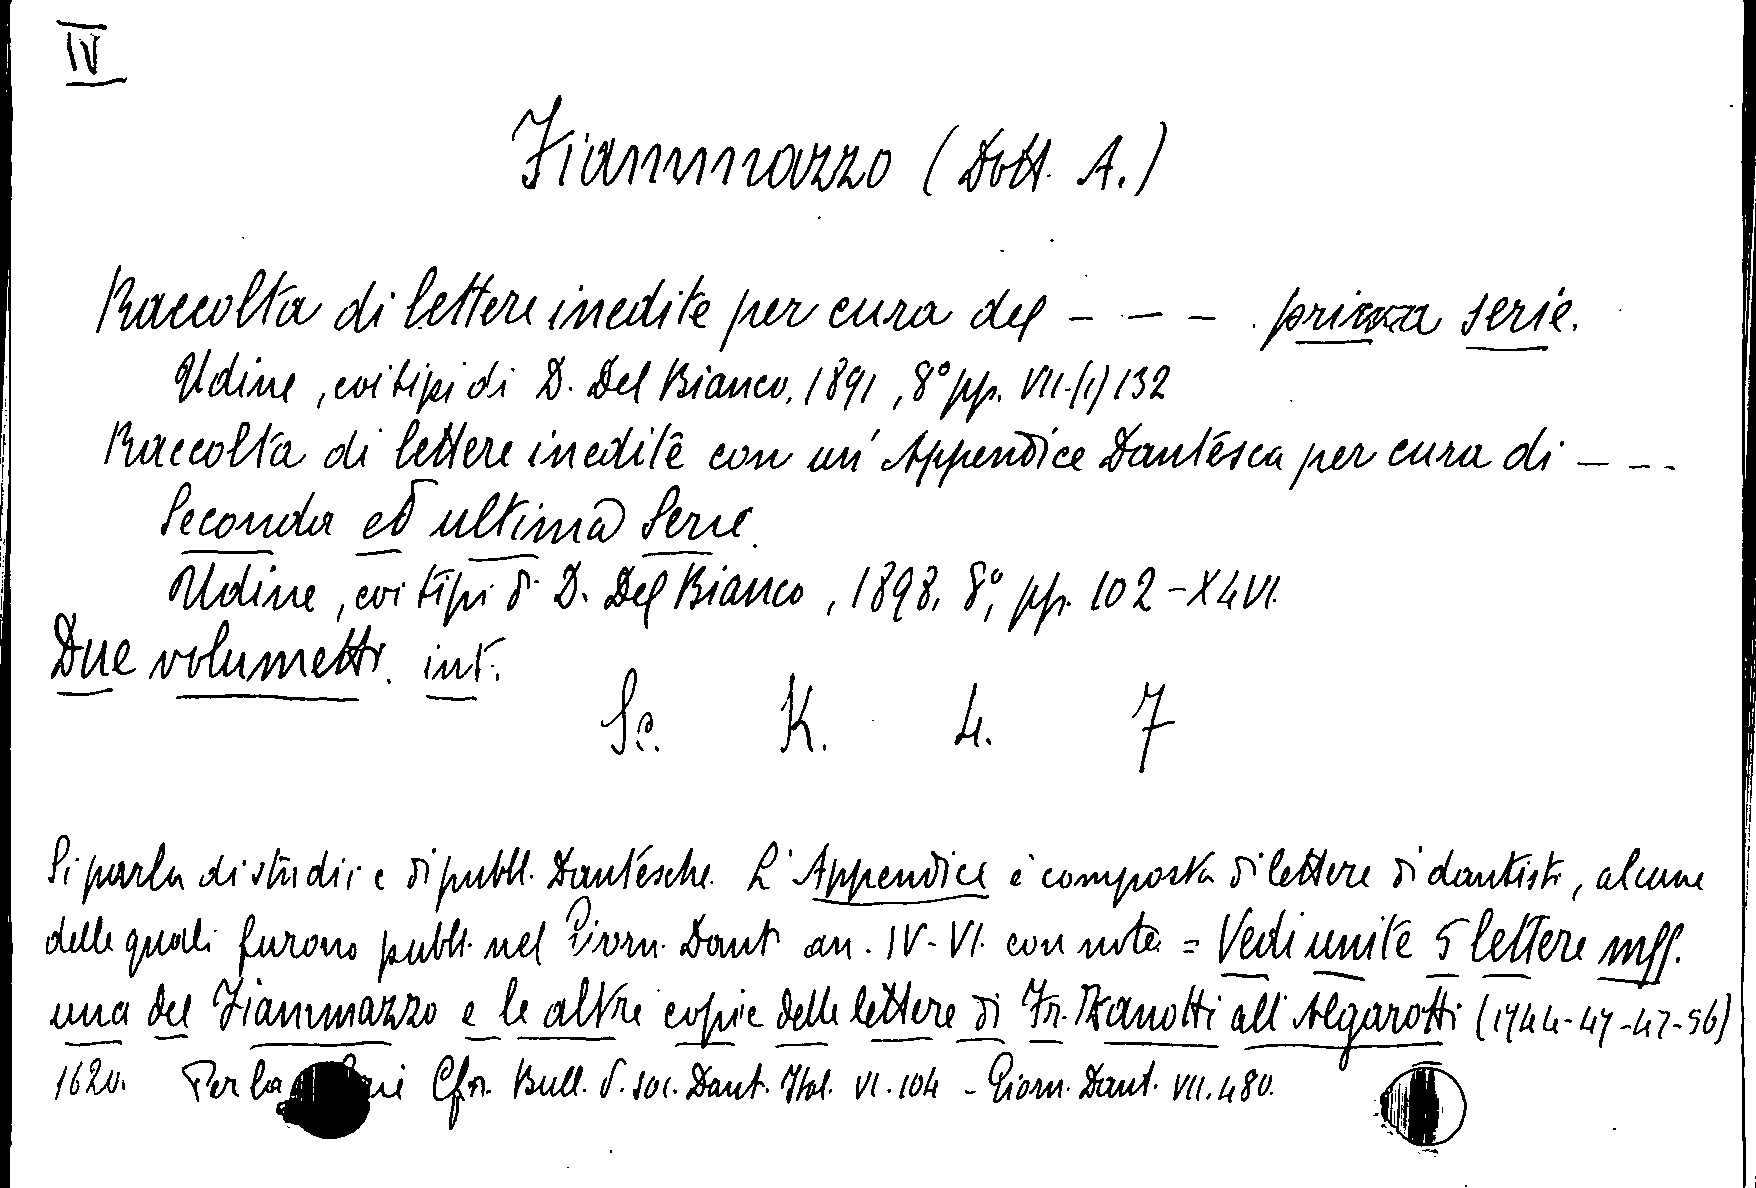 IV
Fiammazzo (Dott. A.)
Raccolta di lettere inedite per cura del - - - prima serie.
Udine, coi tipi di D. Del Bianco, 1891, 8° pp. VII-(1) 132
Raccolta di lettere inedite con un' Appendice Dantesca per cura di - - -
Seconda ed ultima Serie.
Udine, coi tipi d. D. Del Bianco, 1898, 8°, pp. 102-XLVI.
Due volumetti. int.
Sc. K. 4. 7
Si parla di studii e di pubbl. Dantesche. L'Appendice è composta di lettere di dantisti, alcune
delle quali furono pubbl. nel Giorn. Dant. an. IV-VI. con note = Vedi unite 5 lettere mss.
una del Fiammazzo e le altre copie delle lettere di Fr. Zanotti all'Algarotti (1744-47-47-56)
1620. Per la Cfr. Bull. d. soc. Dant. Ital. VI. 104 - Giorn. Dant. VII. 480.